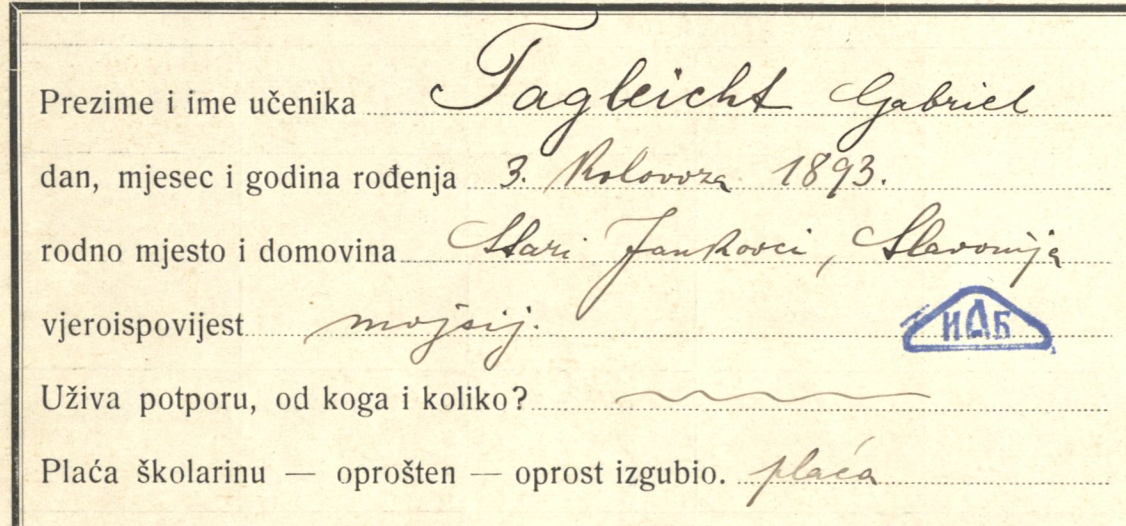 Prezime i ime učenika Tagleicht Gabriel
dan, mjesec i godina rođenja 3. Kolovoza 1893.
rodno mjesto i domovina Stari Jankovci, Slavonija
vjeroispovijest mojsij.
ИАБ
Uživa potporu, od koga i koliko?
Plaća školarinu — oprošten — oprost izgubio. plaća